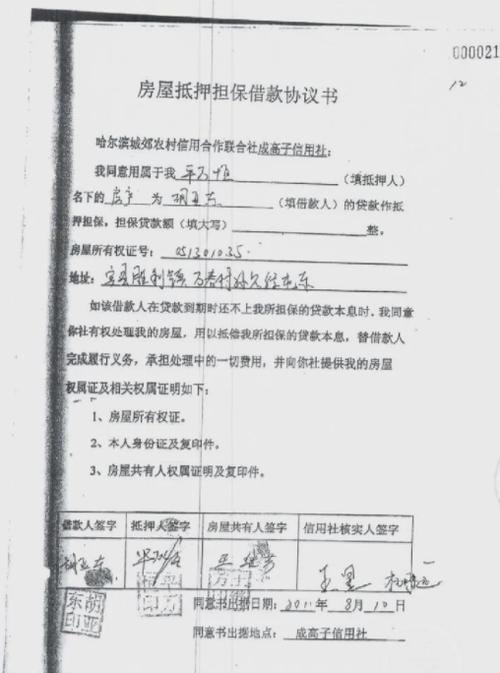 000021
12
房屋抵押担保借款协议书
哈尔滨城郊农村信用合作联合社成高子信用社:
我同意用属于我（填抵押人）
名下的房产为胡亚东（填借款人）的贷款作抵
押担保，担保贷款额（填大写）整。
房屋所有权证号：051301035
地址：宾县胜利镇
如该借款人在贷款到期时还不上我所担保的贷款本息时，我同意
你社有权处理我的房屋，用以抵偿我所担保的贷款本息，替借款人
完成履行义务，承担处理中的一切费用，并向你社提供我的房屋
权属证及相关权属证明如下：
1、房屋所有权证。
2、本人身份证及复印件。
3、房屋共有人权属证明及复印件。
借款人签字 抵押人签字 房屋共有人签字 信用社核实人签字
胡亚东
胡亚东印
同意书出据日期：2011年8月10日
同意书出据地点：成高子信用社